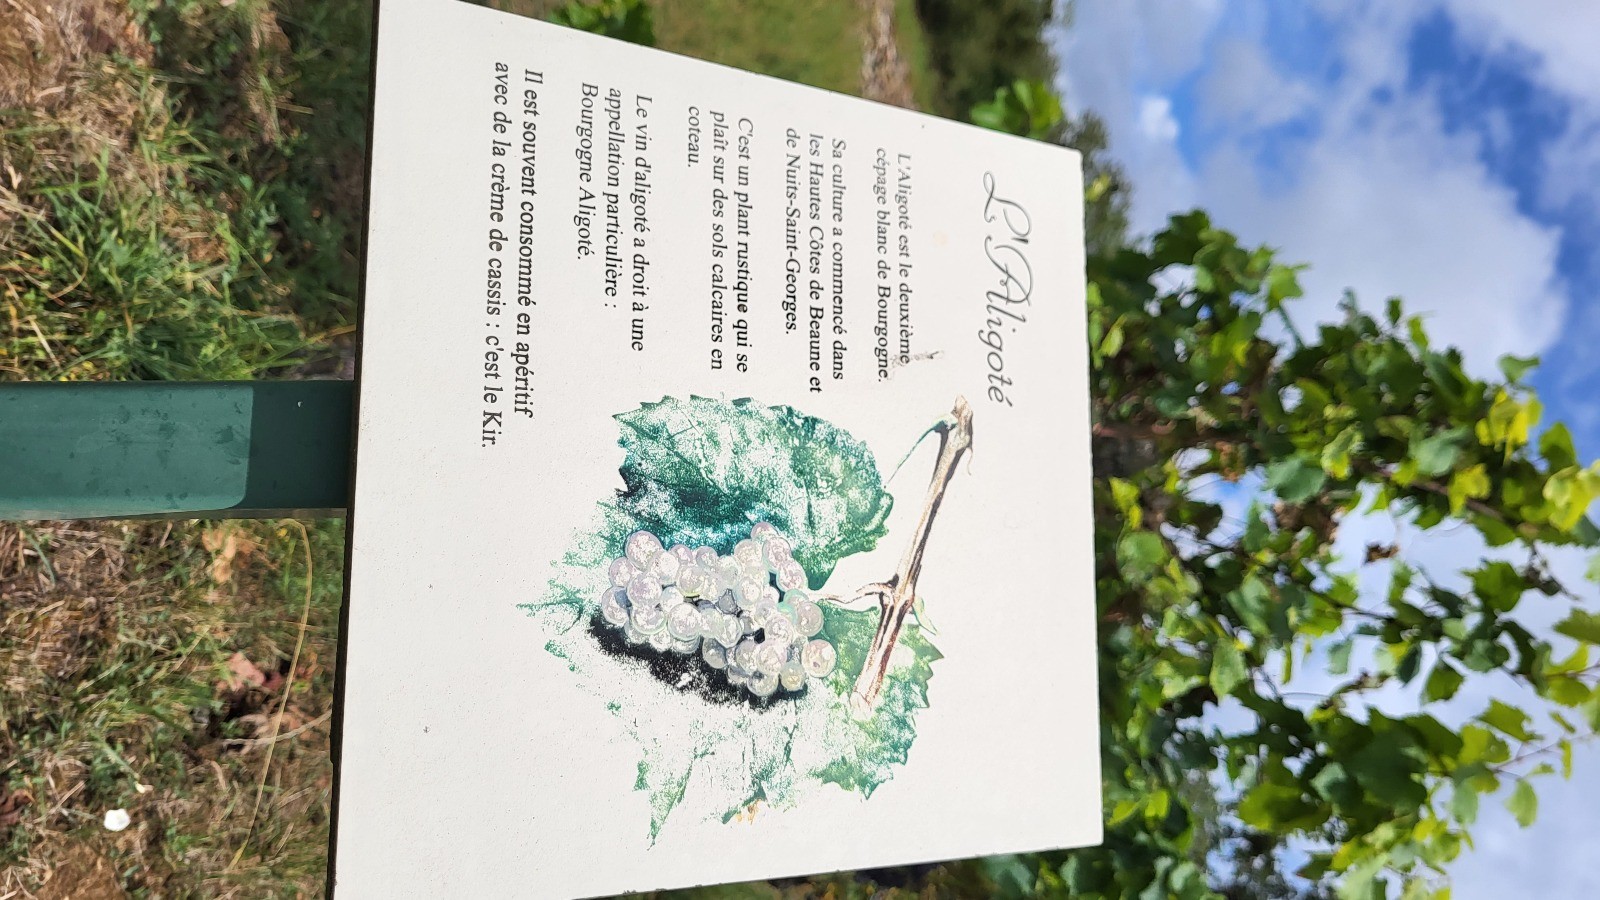 L'Aligoté
L'Aligoté est le deuxième
cépage blanc de Bourgogne.
Sa culture a commencé dans
les Hautes Côtes de Beaune et
de Nuits-Saint-Georges.
C'est un plant rustique qui se
plaît sur des sols calcaires en
coteau.
Le vin d'aligoté a droit à une
appellation particulière :
Bourgogne Aligoté.
Il est souvent consommé en apéritif
avec de la crème de cassis : c'est le Kir.